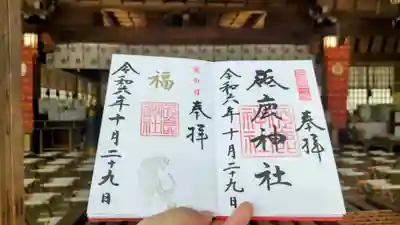 奉拝
砥鹿神社
令和六年十月二十九日
奉拝
福
令和六年十月二十九日